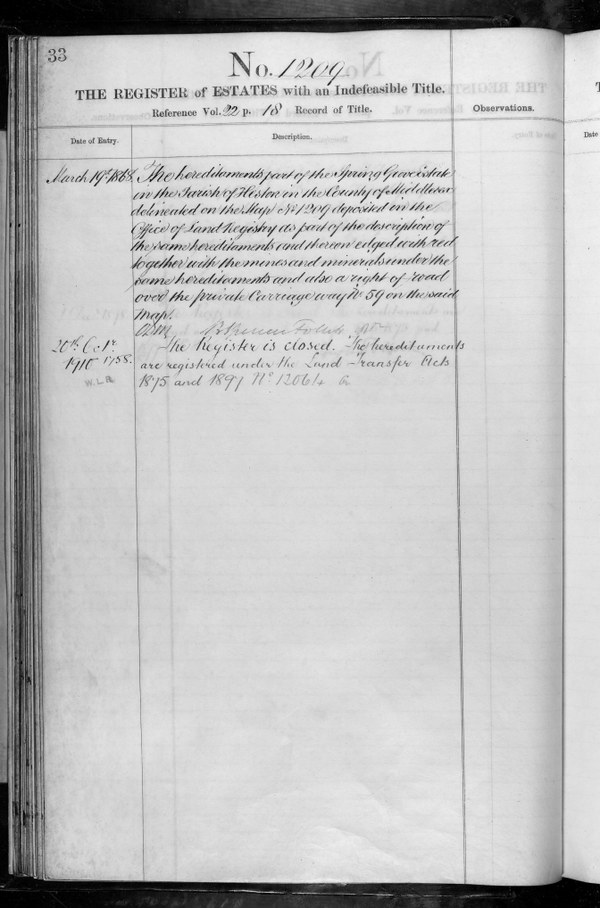 33
No. 1209
THE REGISTER of ESTATES with an Indefeasible Title.
Reference Vol. 22 p. 18 Record of Title.
Observations.
Date of Entry.
Description.
March 19th 1868.
The hereditaments part of the Spring Grove Estate
in the Parish of Heston in the County of Middlesex
delineated on the Map No 1209 deposited in the
Office of Land Registry as part of the description of
the same hereditaments and thereon edged with red
together with the mines and minerals under the
same hereditaments and also a right of road
over the private Carriage way No 59 on the said
Map.
20th Octr
1910 1758.
W.L.B.
The Register is closed. The hereditaments
are registered under the Land Transfer Acts
1875 and 1897 No 12064
Date